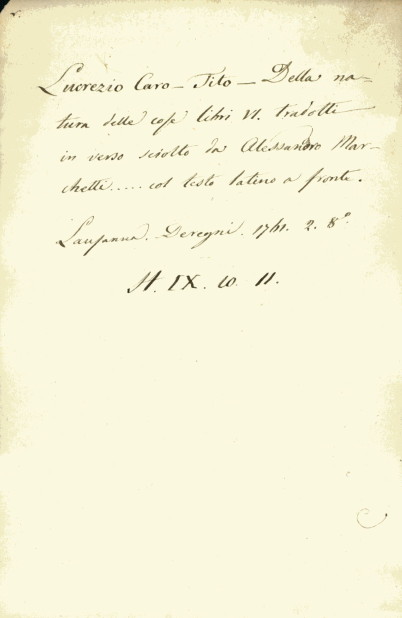 Lucrezio Caro - Tito - Della na-
tura delle cose libri VI. tradotti
in verso sciolto da Alessandro Mar-
chetti..... col testo latino a fronte.
Lausanna. Deregni. 1761. 2. 8°.
St. IX. 10. 11.